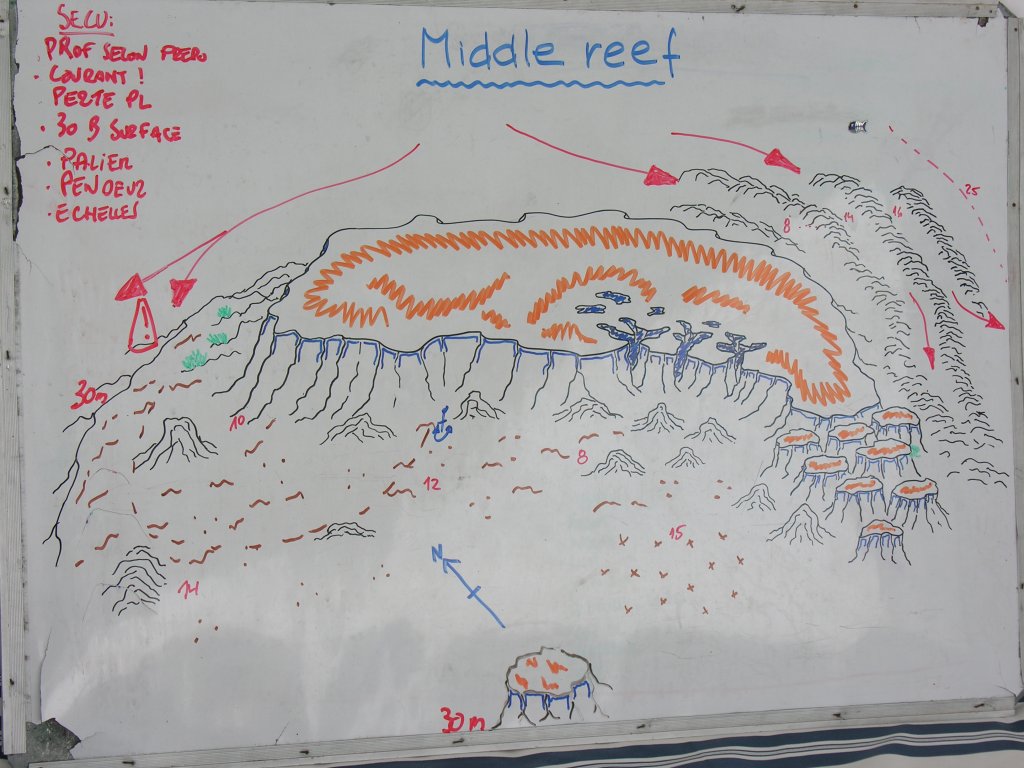 Middle reef
SECU:
PROF SELON
• COURANT !
PERTE PL
• 30 B SURFACE
• PALIER
• PENDEUR
• ECHELLES
25
8
14
16
30m
10
8
12
15
N
14
30m